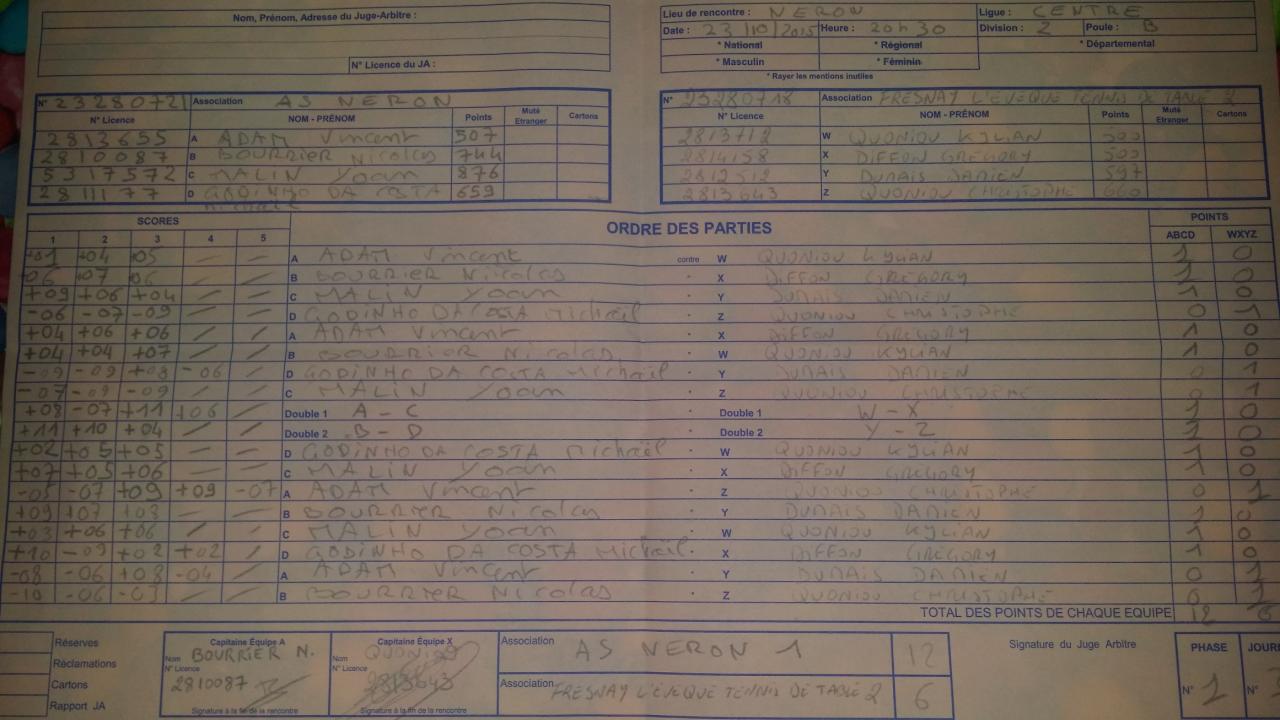 Nom, Prénom, Adresse du Juge-Arbitre :
N° Licence du JA :
Lieu de rencontre : NERON Ligue : CENTRE
Date : 23/10/2015 Heure : 20h30 Division : 2 Poule : B
* National * Régional * Départemental
* Masculin * Féminin
* Rayer les mentions inutiles
N° 23280721 Association AS NERON
N° Licence NOM - PRÉNOM Points Muté Etranger Cartons
2813655 A ADAM Vincent 507
2810087 B BOURRIER Nicolas 744
5317572 C MALIN Yoan 876
2811177 D GODINHO DA COSTA Michaël 659
N° 23280718 Association FRESNAY L'EVEQUE TENNIS DE TABLE 2
N° Licence NOM - PRÉNOM Points Muté Etranger Cartons
2813712 W QUONIOU KYLIAN 500
2814158 X DIFFON GRÉGORY 500
2812512 Y DUMAIS DAMIEN 597
2813643 Z QUONIOU CHRISTOPHE 660
SCORES ORDRE DES PARTIES POINTS
1 2 3 4 5 ABCD WXYZ
+01 +04 +05 — — A ADAM Vincent contre W QUONIOU KYLIAN 1 0
06 +07 06 — — B BOURRIER Nicolas " X DIFFON GREGORY 1 0
+09 +06 +04 / / C MALIN Yoan " Y DUMAIS DAMIEN 1 0
-06 -07 -09 / / D GODINHO DA COSTA Michaël " Z QUONIOU CHRISTOPHE 0 1
+04 +06 +06 / / A ADAM Vincent " X DIFFON GREGORY 1 0
+04 +04 +07 / / B BOURRIER Nicolas " W QUONIOU KYLIAN 1 0
-09 -09 +08 -06 / D GODINHO DA COSTA Michaël " Y DUMAIS DAMIEN 0 1
-07 -09 -09 / / C MALIN Yoan " Z QUONIOU CHRISTOPHE 0 1
+08 -07 +11 +06 / Double 1 A - C " Double 1 W - X 1 0
+11 +10 +04 — — Double 2 B - D " Double 2 Y - Z 1 0
+02 +05 +05 — — D GODINHO DA COSTA Michaël " W QUONIOU KYLIAN 1 0
+07 +05 +06 — — C MALIN Yoan " X DIFFON GREGORY 1 0
-05 -07 +09 +09 -07 A ADAM Vincent " Z QUONIOU CHRISTOPHE 0 1
+09 +07 +08 — / B BOURRIER Nicolas " Y DUMAIS DAMIEN 1 0
+03 +06 +06 / / C MALIN Yoan " W QUONIOU KYLIAN 1 0
+10 -09 +02 +02 / D GODINHO DA COSTA Michaël " X DIFFON GREGORY 1 0
-08 -06 +08 -04 / A ADAM Vincent " Y DUMAIS DAMIEN 0 1
-10 -06 -03 / / B BOURRIER Nicolas " Z QUONIOU CHRISTOPHE 0 1
TOTAL DES POINTS DE CHAQUE EQUIPE 12 6
Réserves
Réclamations
Cartons
Rapport JA
Capitaine Équipe A
Nom BOURRIER N.
N° Licence
2810087
Signature à la fin de la rencontre
Capitaine Équipe X
Nom QUONIOU
N° Licence
2813643
Signature à la fin de la rencontre
Association AS NERON 1 12
Association FRESNAY L'EVEQUE TENNIS DE TABLE 2 6
Signature du Juge Arbitre
PHASE JOUR
N° 1 N°